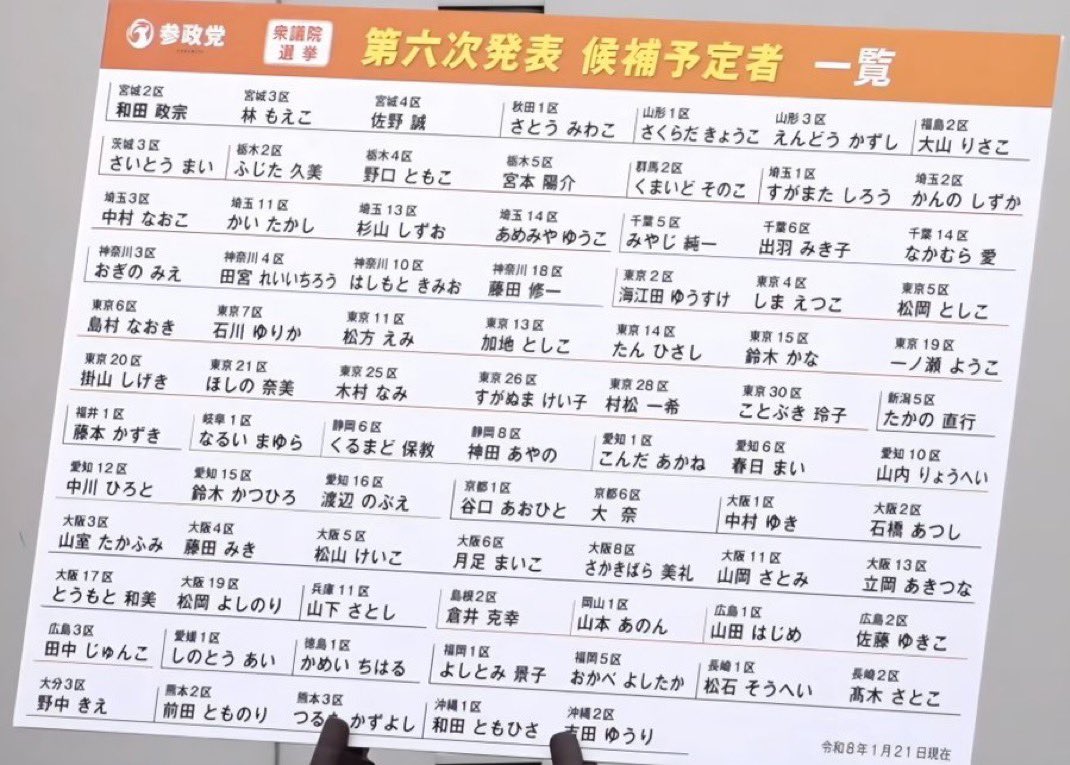 参政党
衆議院
選挙
第六次発表 候補予定者 一覧
宮城2区 宮城3区 宮城4区 秋田1区 山形1区 山形3区 福島2区
和田 政宗 林 もえこ 佐野 誠 さとう みわこ さくらだ きょうこ えんどう かずし 大山 りさこ
茨城3区 栃木2区 栃木4区 栃木5区 群馬2区 埼玉1区 埼玉2区
さいとう まい ふじた 久美 野口 ともこ 宮本 陽介 くまいど そのこ すがまた しろう かんの しずか
埼玉3区 埼玉11区 埼玉13区 埼玉14区 千葉5区 千葉6区 千葉14区
中村 なおこ かい たかし 杉山 しずお あめみや ゆうこ みやじ 純一 出羽 みき子 なかむら 愛
神奈川3区 神奈川4区 神奈川10区 神奈川18区 東京2区 東京4区 東京5区
おぎの みえ 田宮 れいいちろう はしもと きみお 藤田 修一 海江田 ゆうすけ しま えつこ 松岡 としこ
東京6区 東京7区 東京11区 東京13区 東京14区 東京15区 東京19区
島村 なおき 石川 ゆりか 松方 えみ 加地 としこ たん ひさし 鈴木 かな 一ノ瀬 ようこ
東京20区 東京21区 東京25区 東京26区 東京28区 東京30区 新潟5区
掛山 しげき ほしの 奈美 木村 なみ すがぬま けい子 村松 一希 ことぶき 玲子 たかの 直行
福井1区 岐阜1区 静岡6区 静岡8区 愛知1区 愛知6区 愛知10区
藤本 かずき なるい まゆら くるまど 保教 神田 あやの こんだ あかね 春日 まい 山内 りょうへい
愛知12区 愛知15区 愛知16区 京都1区 京都6区 大阪1区 大阪2区
中川 ひろと 鈴木 かつひろ 渡辺 のぶえ 谷口 あおひと 大 奈 中村 ゆき 石橋 あつし
大阪3区 大阪4区 大阪5区 大阪6区 大阪8区 大阪11区 大阪13区
山室 たかふみ 藤田 みき 松山 けいこ 月足 まいこ さかきばら 美礼 山岡 さとみ 立岡 あきつな
大阪17区 大阪19区 兵庫11区 島根2区 岡山1区 広島1区 広島2区
とうもと 和美 松岡 よしのり 山下 さとし 倉井 克幸 山本 あのん 山田 はじめ 佐藤 ゆきこ
広島3区 愛媛1区 徳島1区 福岡1区 福岡5区 長崎1区 長崎2区
田中 じゅんこ しのとう あい かめい ちはる よしとみ 景子 おかべ よしたか 松石 そうへい 髙木 さとこ
大分3区 熊本2区 熊本3区 沖縄1区 沖縄2区
野中 きえ 前田 とものり つる かずよし 和田 ともひさ 田 ゆうり
令和8年1月21日現在